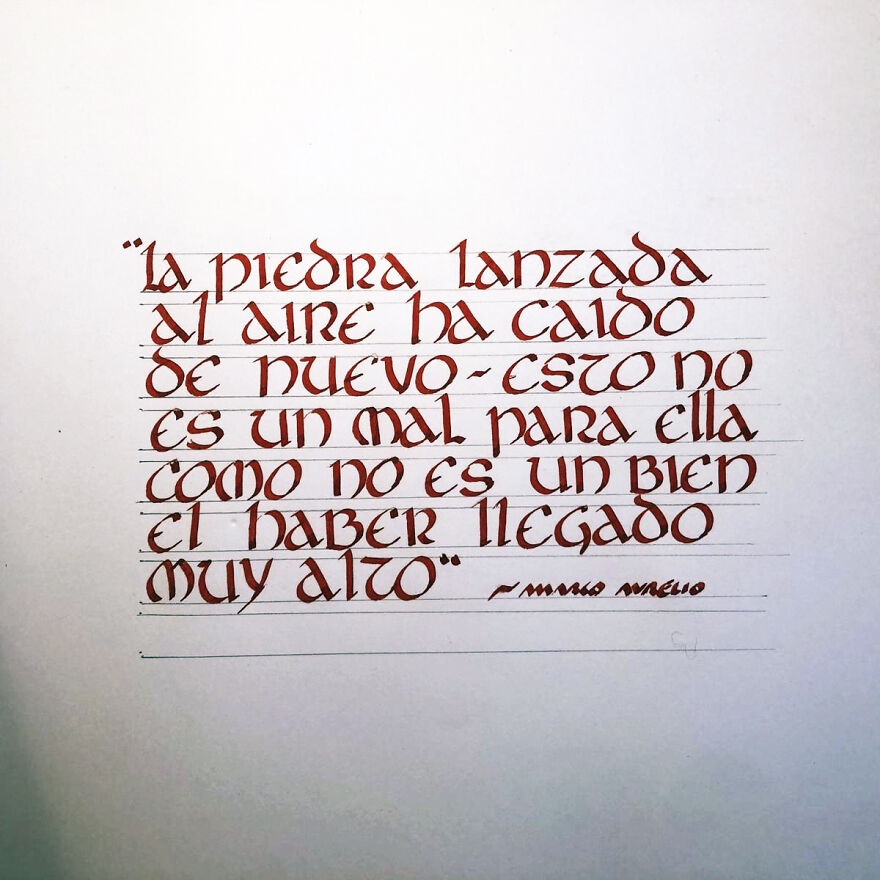 "La piedra lanzada
al aire ha caido
de nuevo - esto no
es un mal para ella
como no es un bien
el haber llegado
muy alto"
~ Marco Aurelio